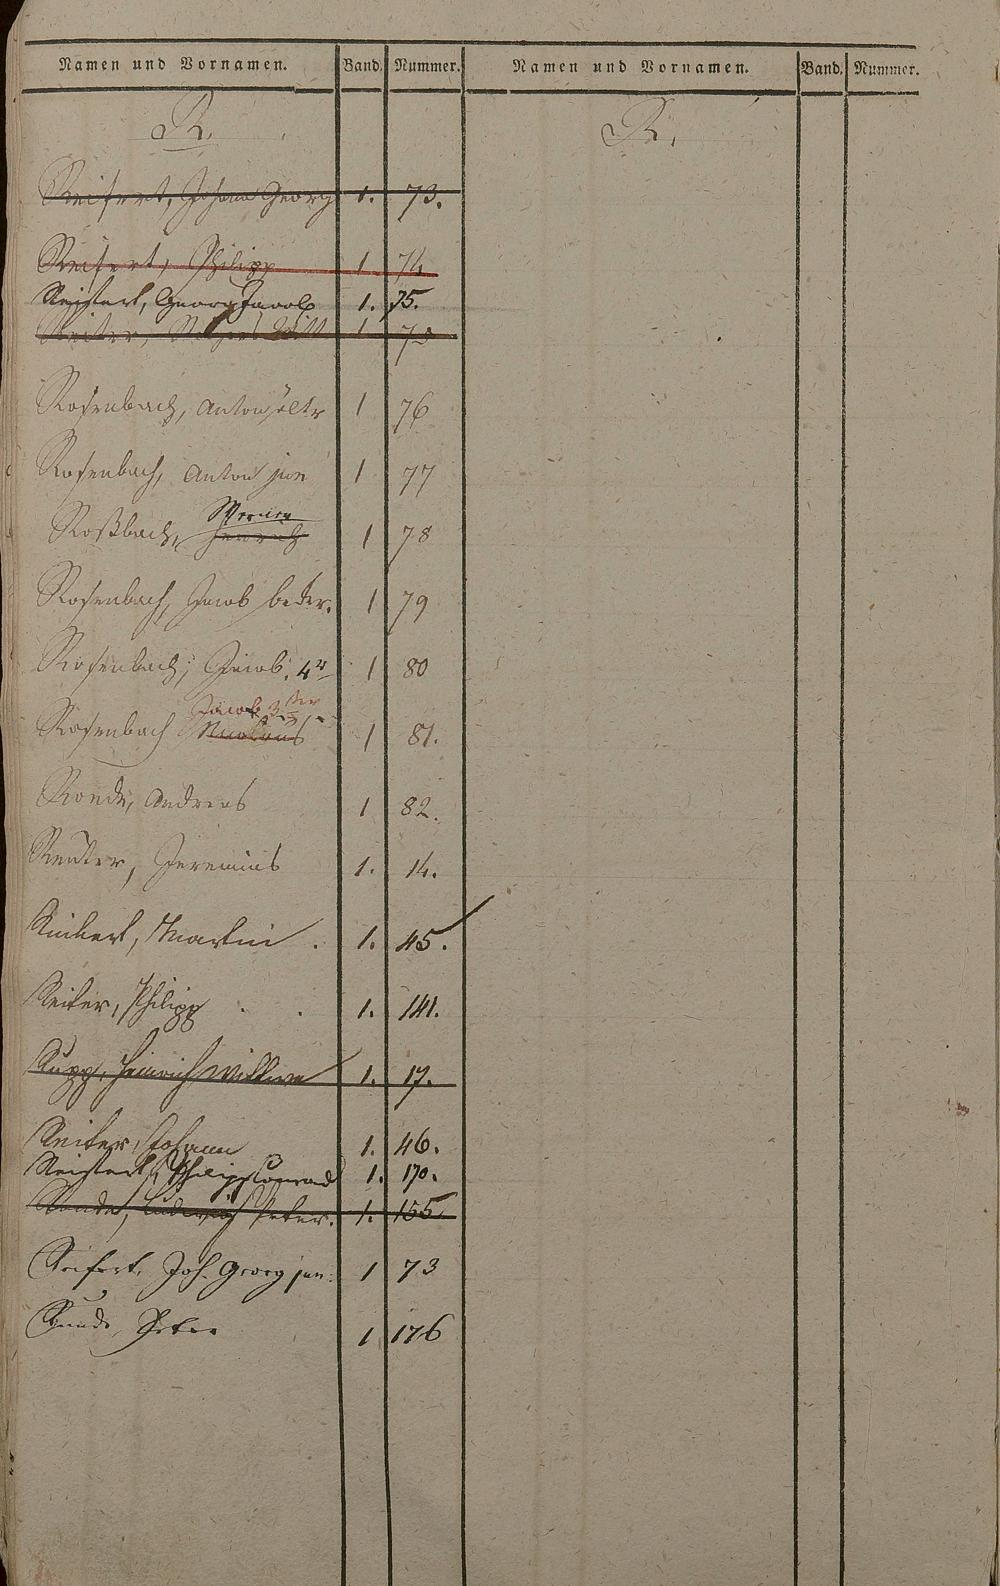 Namen und Vornamen. Band. Nummer. Namen und Vornamen. Band. Nummer.
R. R.
Reifert, Johann Georg 1. 73.
Reifert, Philipp 1 74
Georg Jacob 1. 75.
Reiter, 1
Rosenbach, Anton ältr 1 76
Rosenbach, Anton jun 1 77
Werner
Roßbach, 1 78
Rosenbach, Jacob 1 79
Rosenbach, Jacob. 4r 1 80
Jacob 3ter
Rosenbach Nicolaus 1 81.
Andreas 1 82.
Reuter, Jeremias 1. 14.
Martin . 1. 45.
Reiter, Philipp 1. 141.
Rupp, Heinrich Wittwe 1. 17.
Reiter, Johann 1. 46.
Philipp Conrad 1. 170.
Ludwig Peter. 1. 155.
Reifert, Joh. Georg jun. 1 73
Peter 1 176